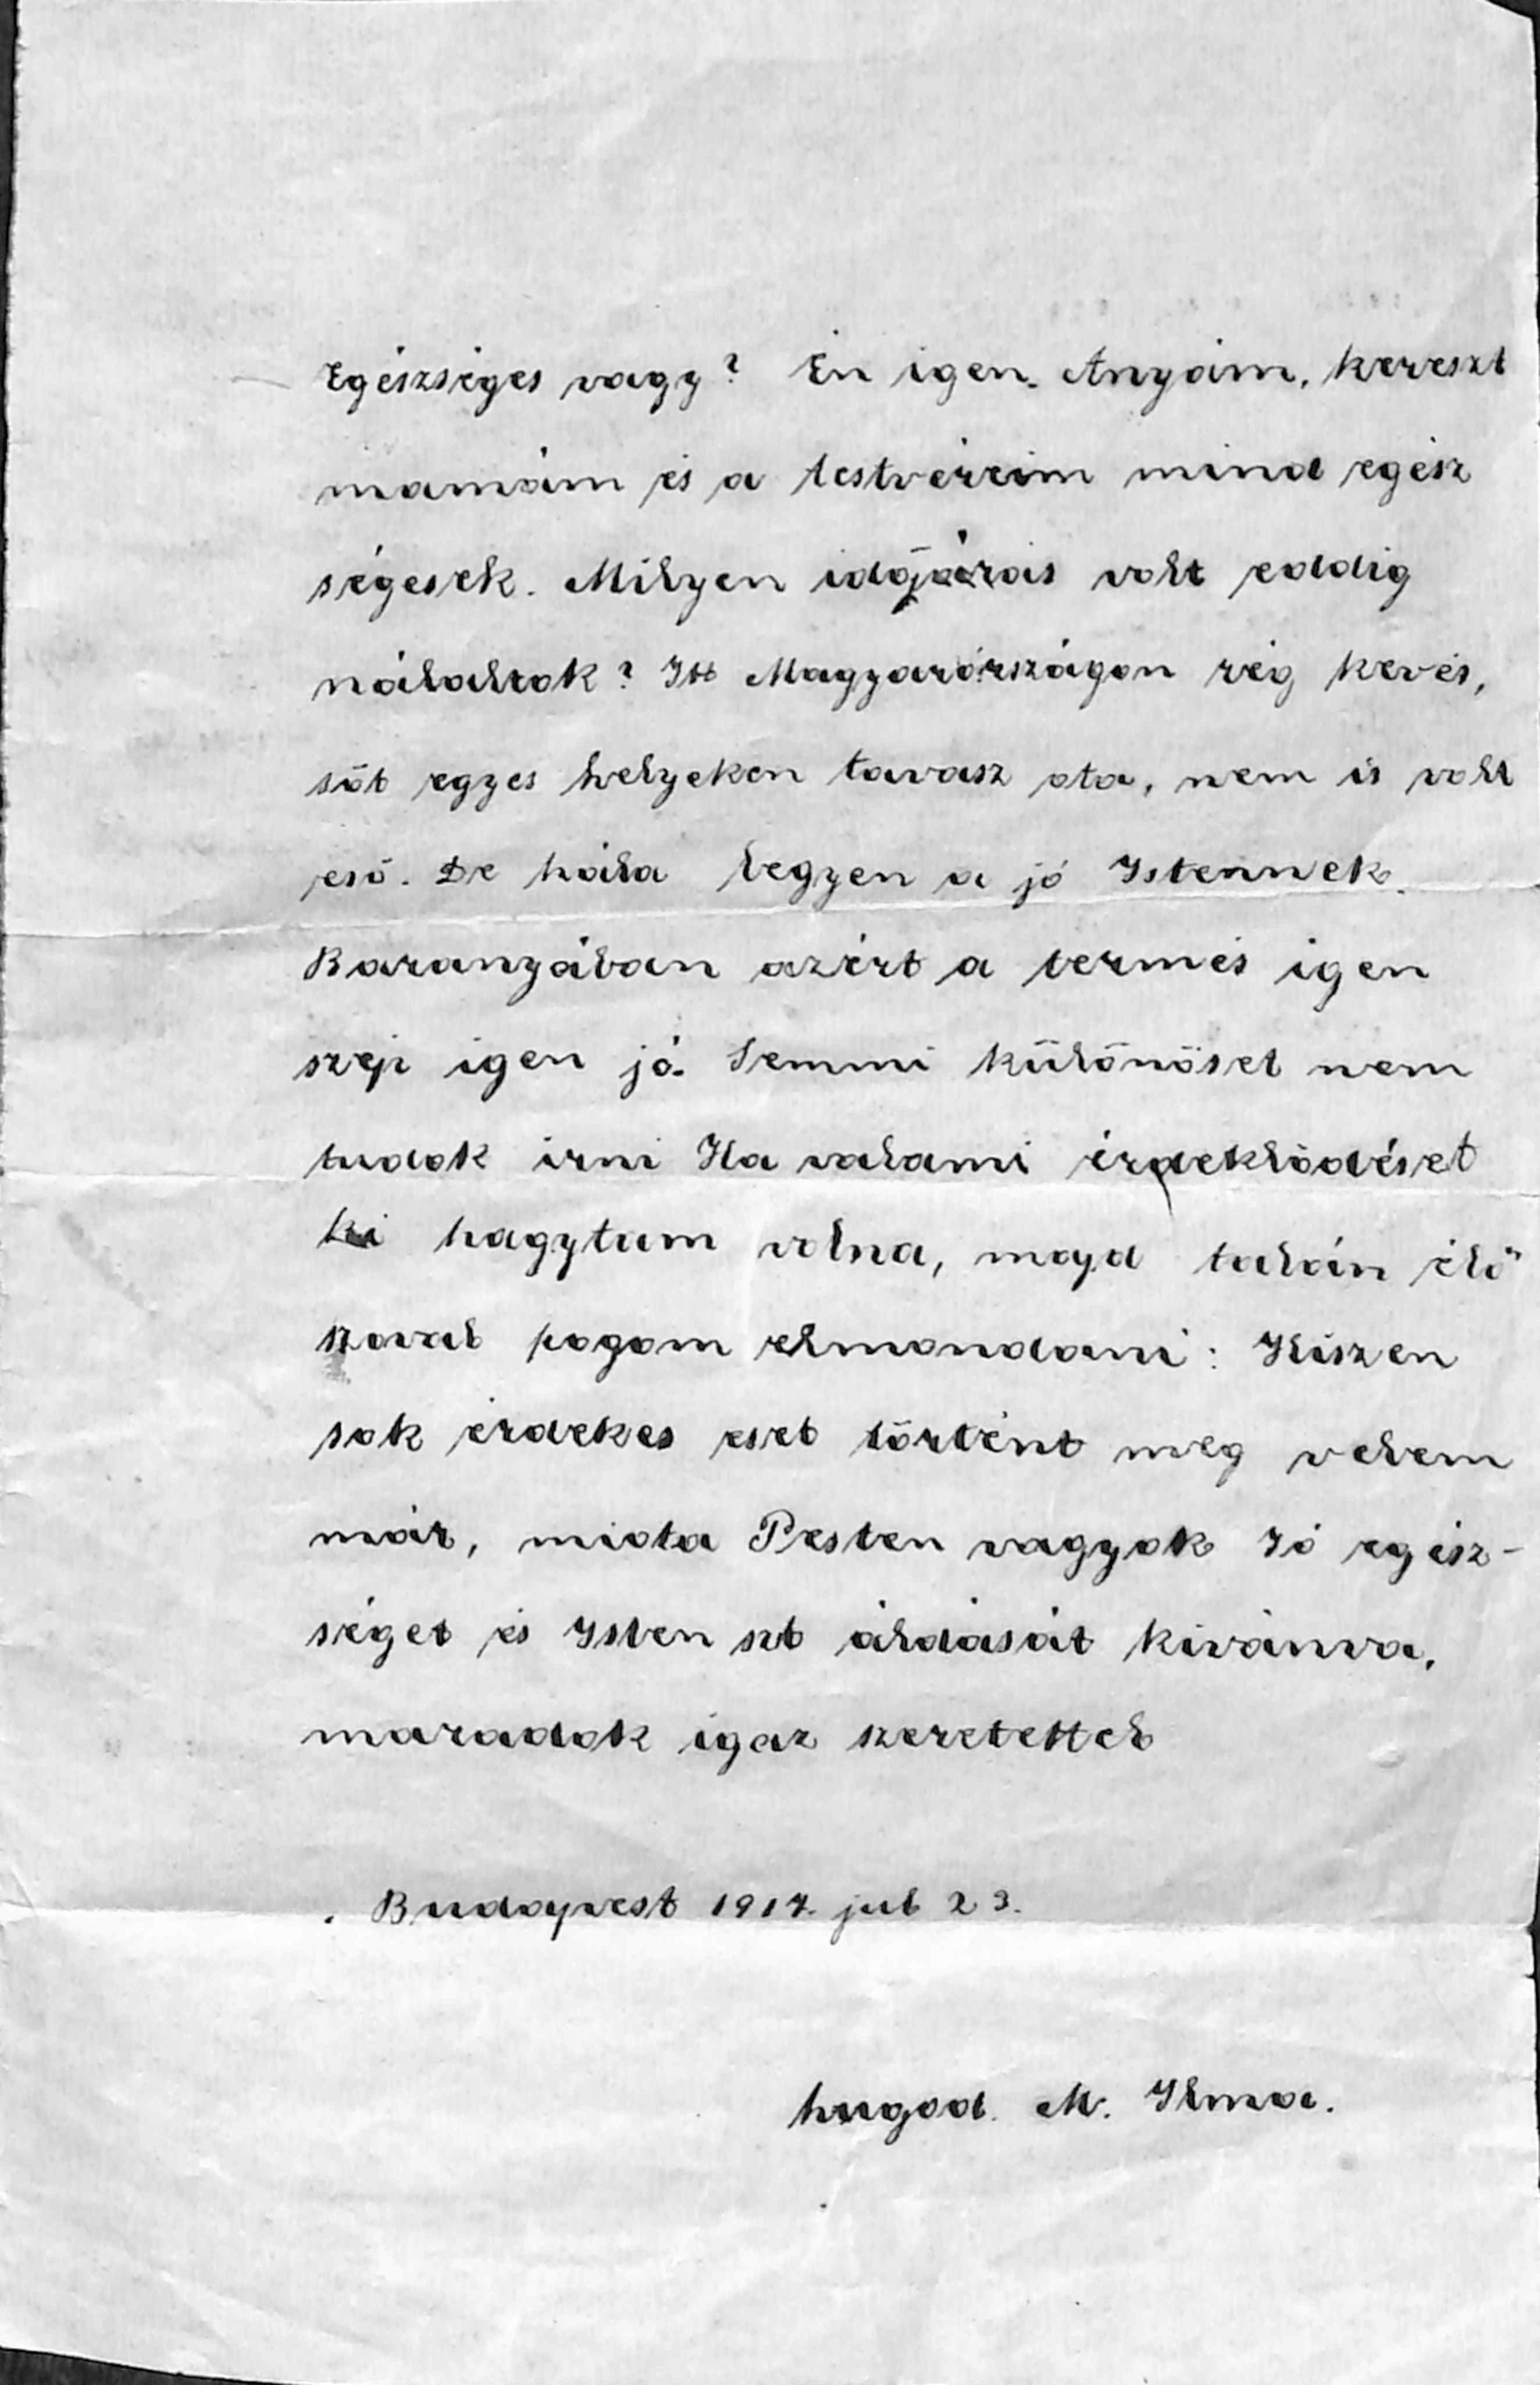 Egészséges vagy? Én igen. Anyám, kereszt
mamám és a testvéreim mind egész
ségesek. Milyen időjárás volt eddig
nálatok? Itt Magyarországon rég kevés,
sőt egyes helyeken tavasz ota, nem is volt
eső. De hála legyen a jó Istennek.
Baranyában azért a termés igen
szép igen jó. Semmi különöset nem
tudok irni Ha valami érdeklődéset
ki hagytam volna, majd talán élő
szoval fogom elmondani: Hiszen
sok érdekes eset történt meg velem
már, miota Pesten vagyok Jó egész-
séget és Isten szt áldását kivánva,
maradok igaz szeretettel
Budapest 1917. jul 23.
hugod. M. Ilma.